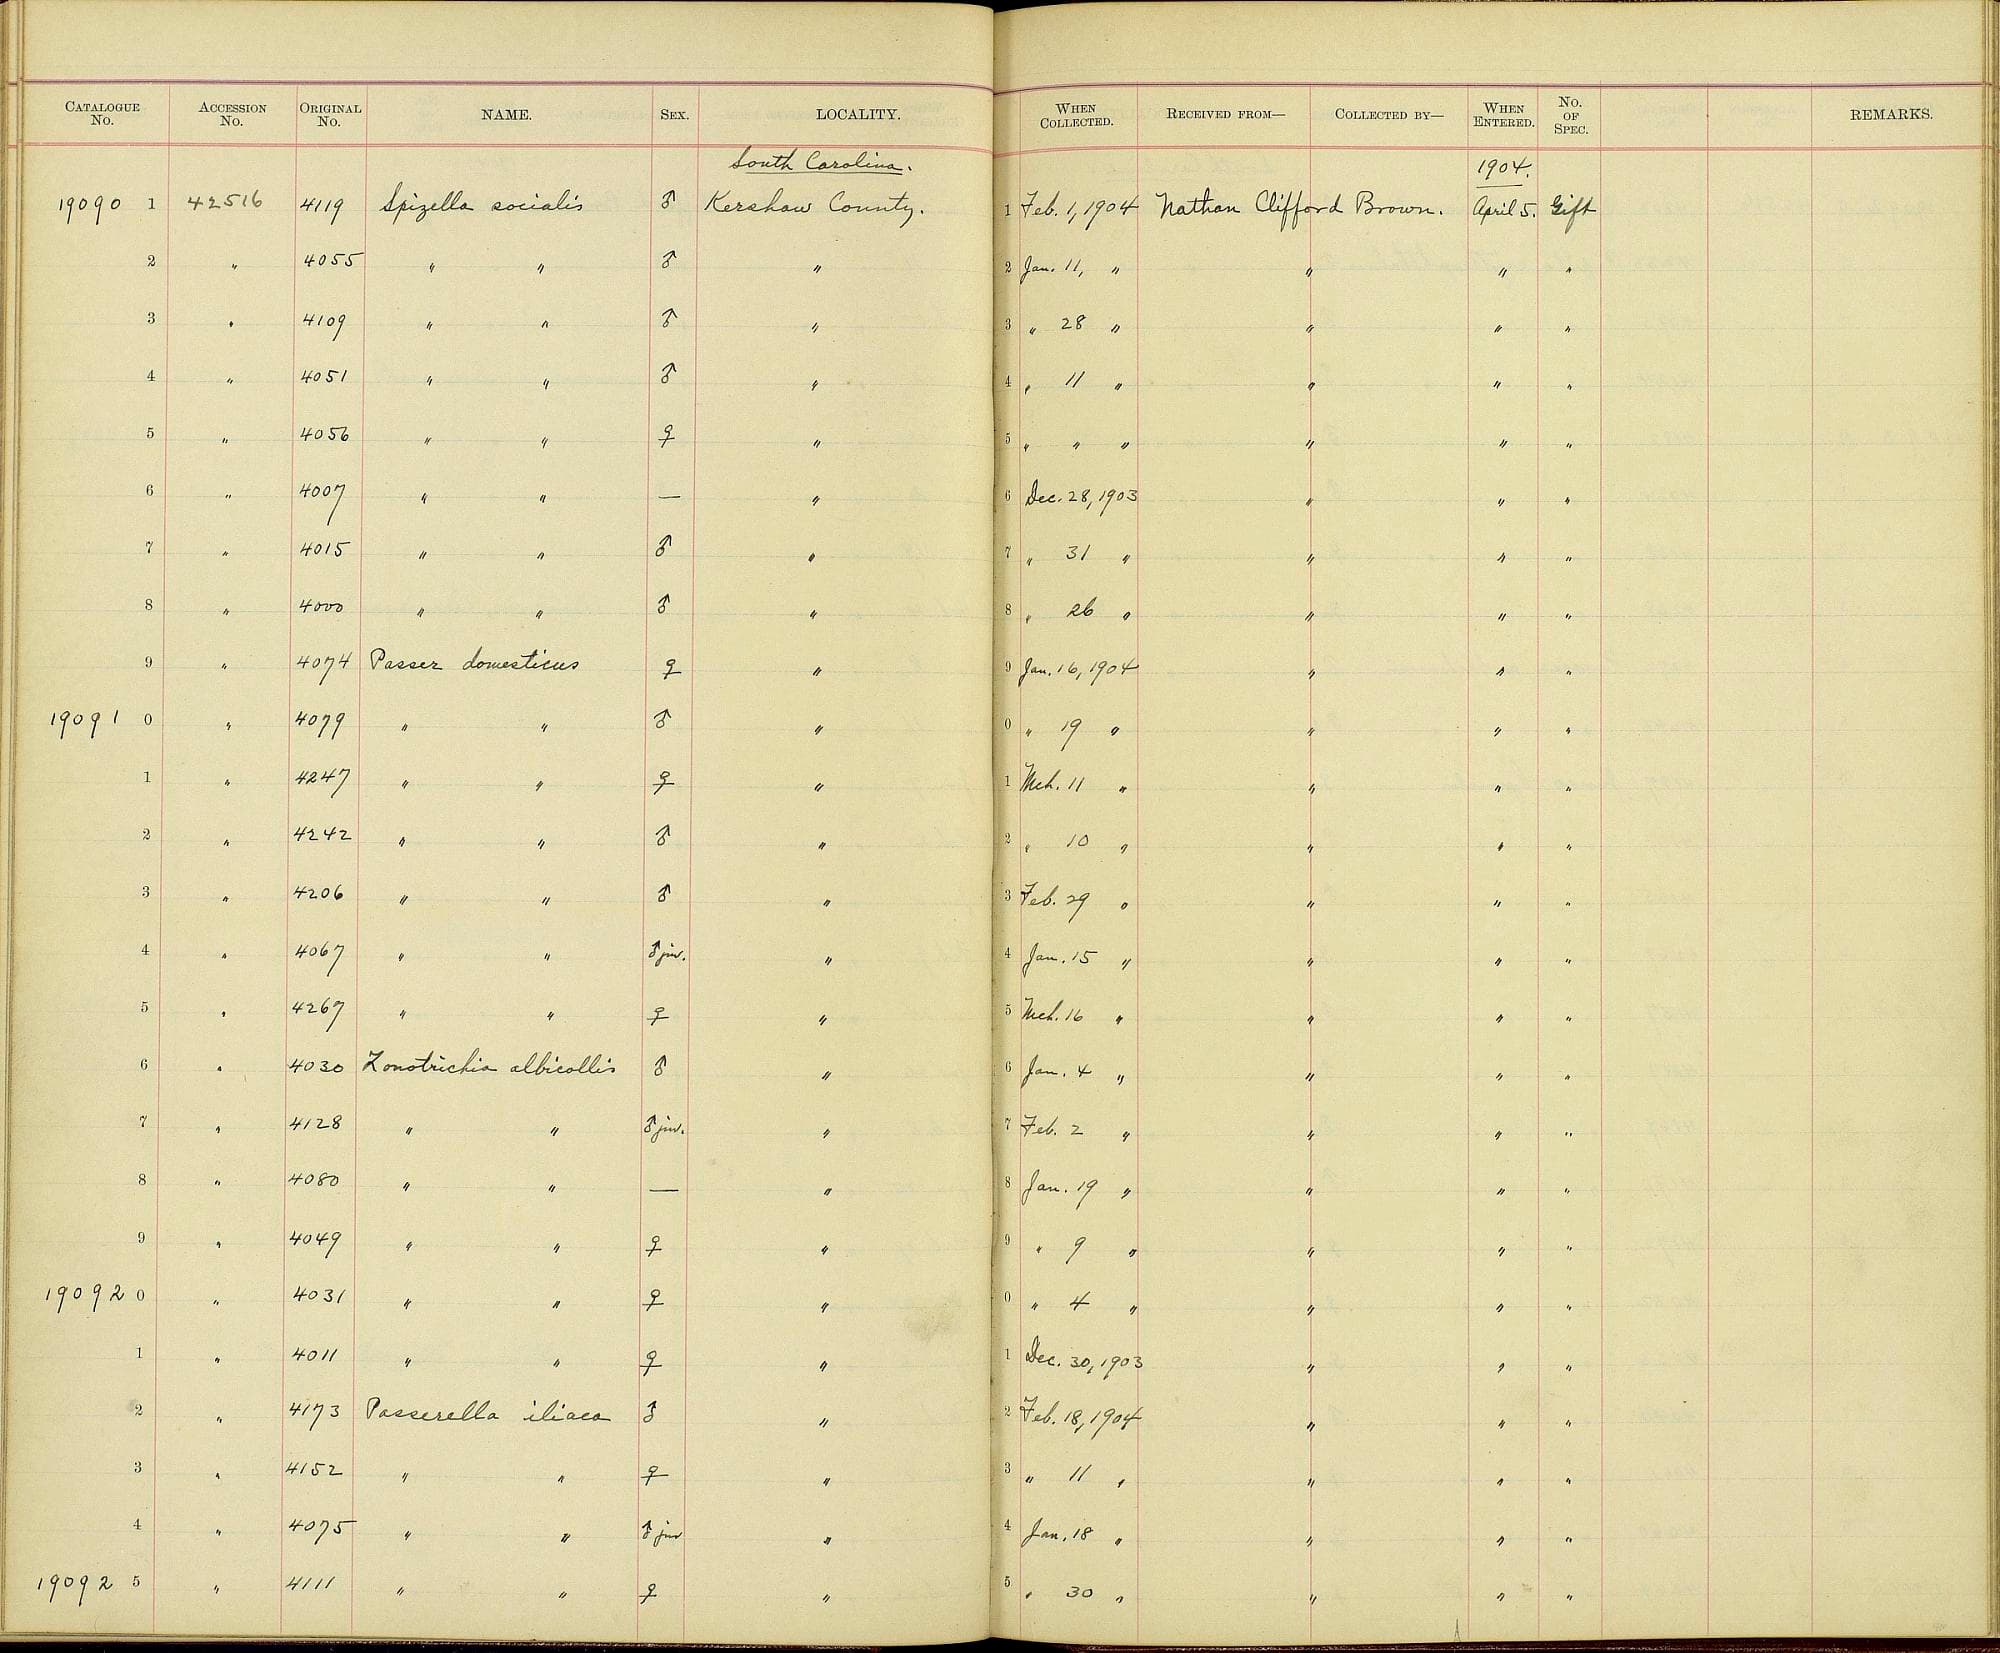 CATALOGUE No. ACCESSION No. ORIGINAL No. NAME. SEX. LOCALITY. WHEN COLLECTED. RECEIVED FROM— COLLECTED BY— WHEN ENTERED. No. OF SPEC. REMARKS.
South Carolina. 1904.
19090 1 42516 4119 Spizella socialis ♂ Kershaw County. 1 Feb. 1, 1904 Nathan Clifford Brown. April 5. Gift
2 " 4055 " " ♂ " 2 Jan. 11, " " " "
3 " 4109 " " ♂ " 3 " 28 " " " "
4 " 4051 " " ♂ " 4 " 11 " " " "
5 " 4056 " " ♀ " 5 " " " " " "
6 " 4007 " " — " 6 Dec. 28, 1903 " " "
7 " 4015 " " ♂ " 7 " 31 " " " "
8 " 4000 " " ♂ " 8 " 26 " " " "
9 " 4074 Passer domesticus ♀ " 9 Jan. 16, 1904 " " "
19091 0 " 4079 " " ♂ " 0 " 19 " " " "
1 " 4247 " " ♀ " 1 Mch. 11 " " " "
2 " 4242 " " ♂ " 2 " 10 " " " "
3 " 4206 " " ♂ " 3 Feb. 29 " " " "
4 " 4067 " " ♂ juv. " 4 Jan. 15 " " " "
5 " 4267 " " ♀ " 5 Mch. 16 " " " "
6 " 4030 Zonotrichia albicollis ♂ " 6 Jan. 4 " " " "
7 " 4128 " " ♂ juv. " 7 Feb. 2 " " " "
8 " 4080 " " — " 8 Jan. 19 " " " "
9 " 4049 " " ♀ " 9 " 9 " " " "
19092 0 " 4031 " " ♀ " 0 " 4 " " " "
1 " 4011 " " ♀ " 1 Dec. 30, 1903 " " "
2 " 4173 Passerella iliaca ♂ " 2 Feb. 18, 1904 " " "
3 " 4152 " " ♀ " 3 " 11 " " " "
4 " 4075 " " ♂ juv " 4 Jan. 18 " " " "
19092 5 " 4111 " " ♀ " 5 " 30 " " " "